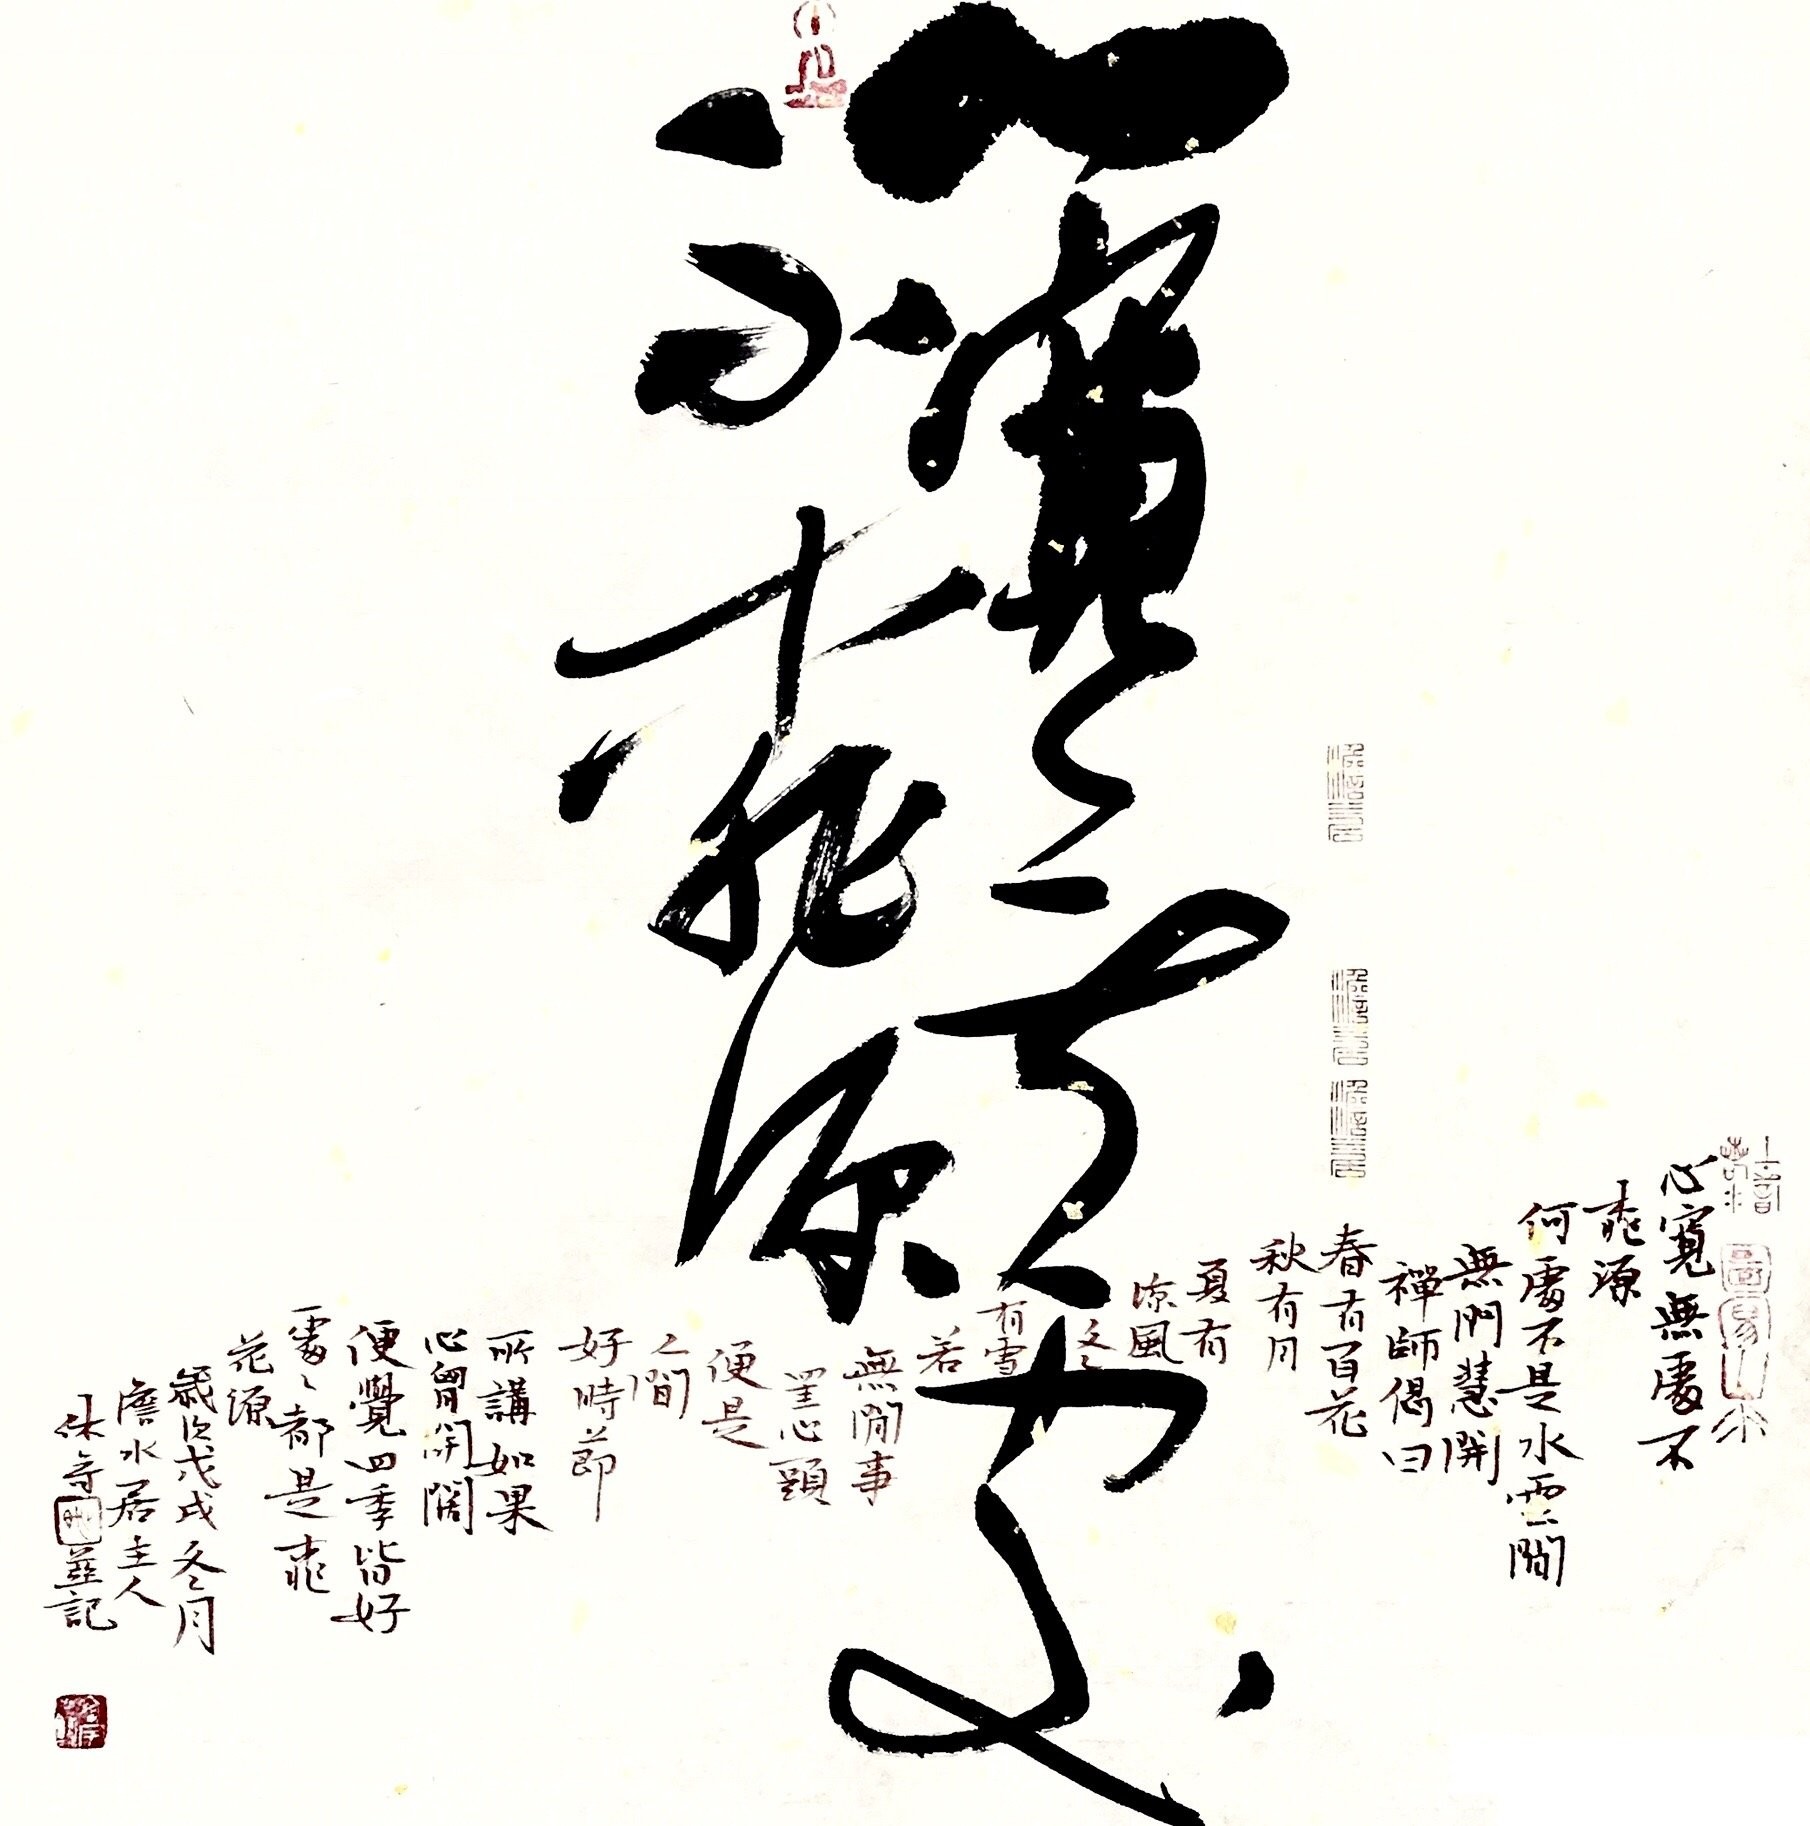 心寬無處
不桃源
心寬無處不
桃源
何處不是水雲間
無門慧開
禪師偈曰
春有百花
秋有月
夏有
涼風
冬
有雪
若
無閒事
罣心頭
便是
人間
好時節
所講如果
心胷開闊
便覺四季皆好
處處都是桃
花源
歲次戊戌冬月
澹水居主人
休亭 並記